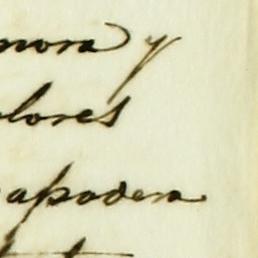 mora y
olores
apodera